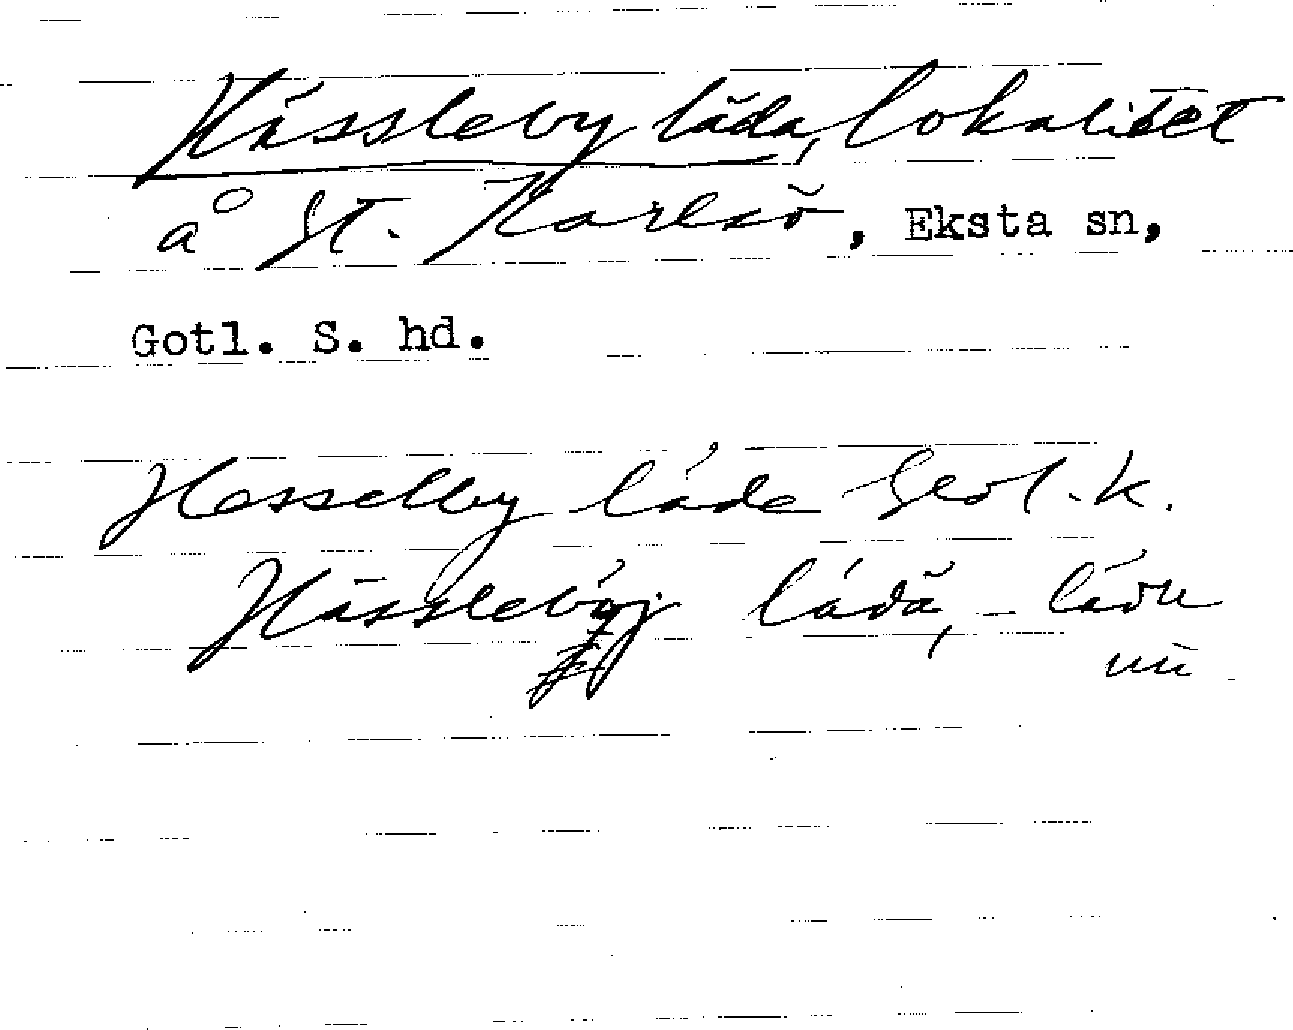 Hässleby låda, lokalitet
å St. Karlsö, Eksta sn,
Gotl. S. hd.
Hesselby låde Geol. k.
Hässleby lådă, - lådu